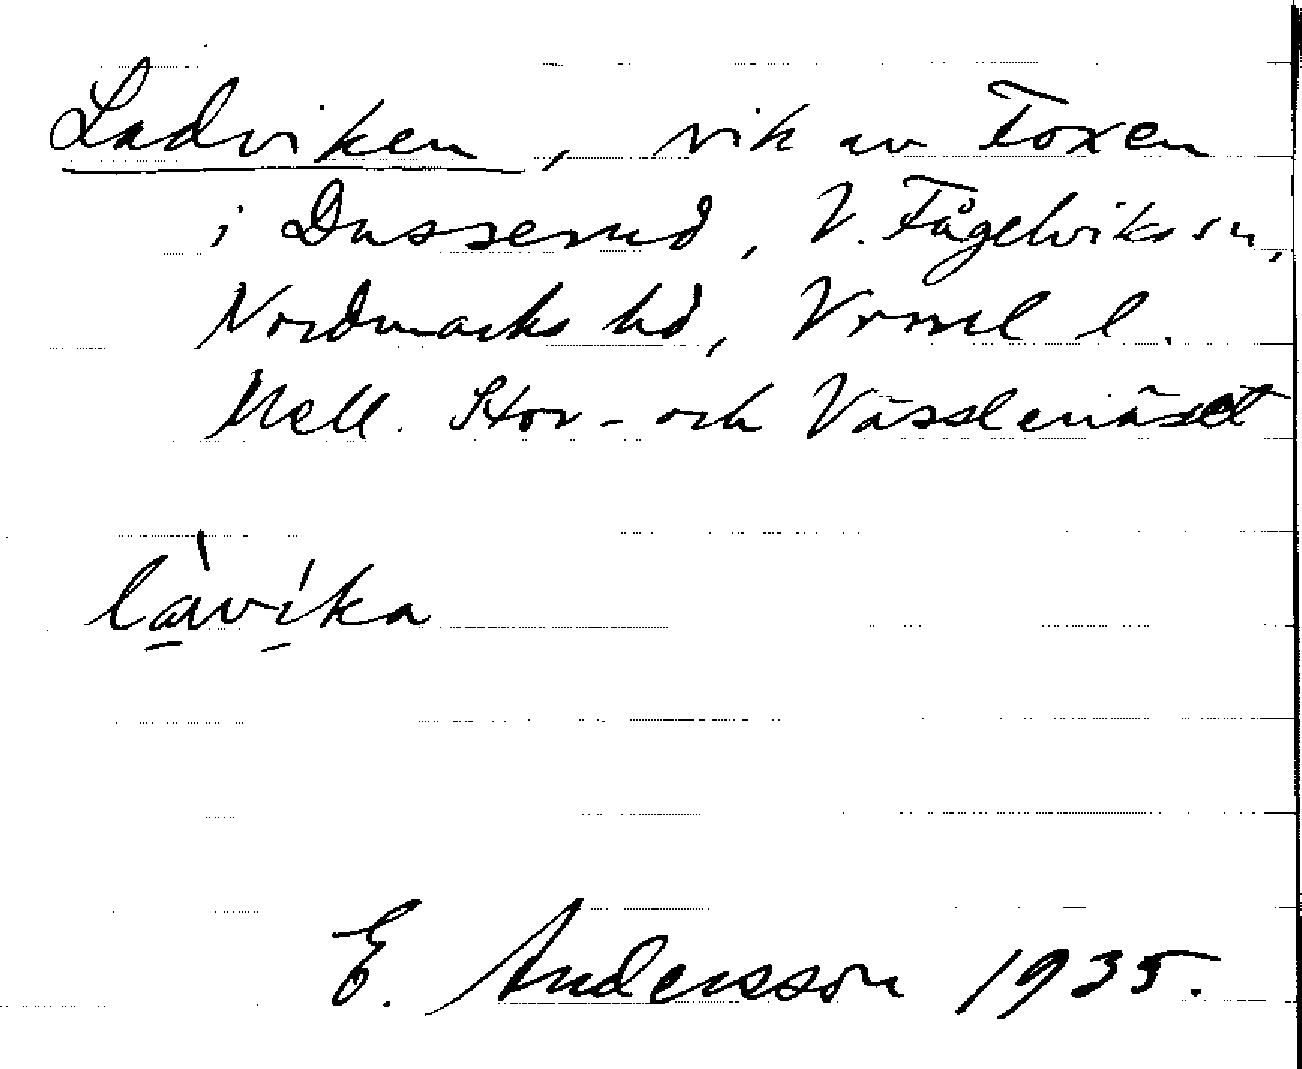 Ladviken, vik av Foxen
i Dusserud, V. Fågelviks sn,
Nordmarks hd, Vrml l.
Mell. Stor- och Vässlenäset
làvíka
E. Andersson 1935.